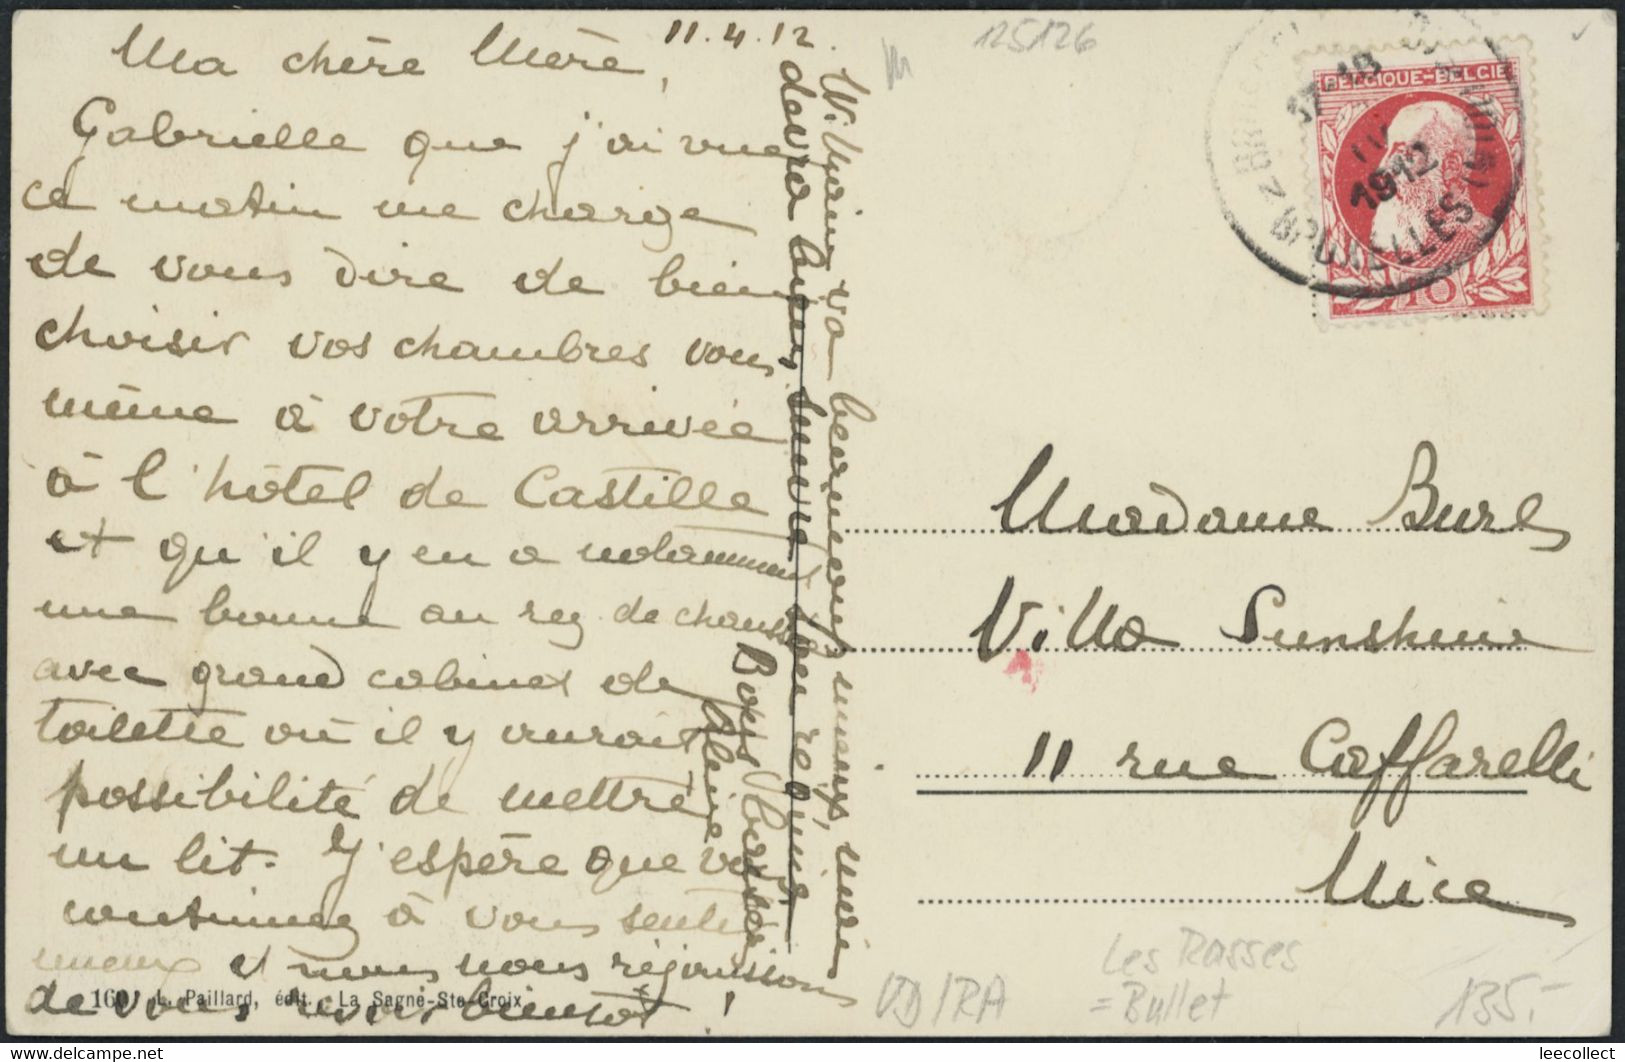 11.4.12.
Ma chère Mère,
Gabrielle que j'ai vue
ce matin me charge
de vous dire de bien
choisir vos chambres vous
même à votre arrivée
à l'hôtel de Castille
et qu'il y en a notamment
une bonne au rez de chaussée
avec grand cabinet de
toilette où il y aurait
possibilité de mettre
un lit. J'espère que vous
continuez à vous sentir
mieux et nous nous réjouissons
de vous revoir bientôt!
va beaucoup mieux, mais
devra bien suivre son régime
Bons baisers
160. L. Paillard, édit., La Sagne-Ste-Croix
125126
BELGIQUE-BELGIE
10
17-18
IV
1912
BRUXELLES
Madame Burls
Villa Sunshine
11 rue Caffarelli
Nice
Les Rasses
= Bullet
VD/RA
135.-
leecollect